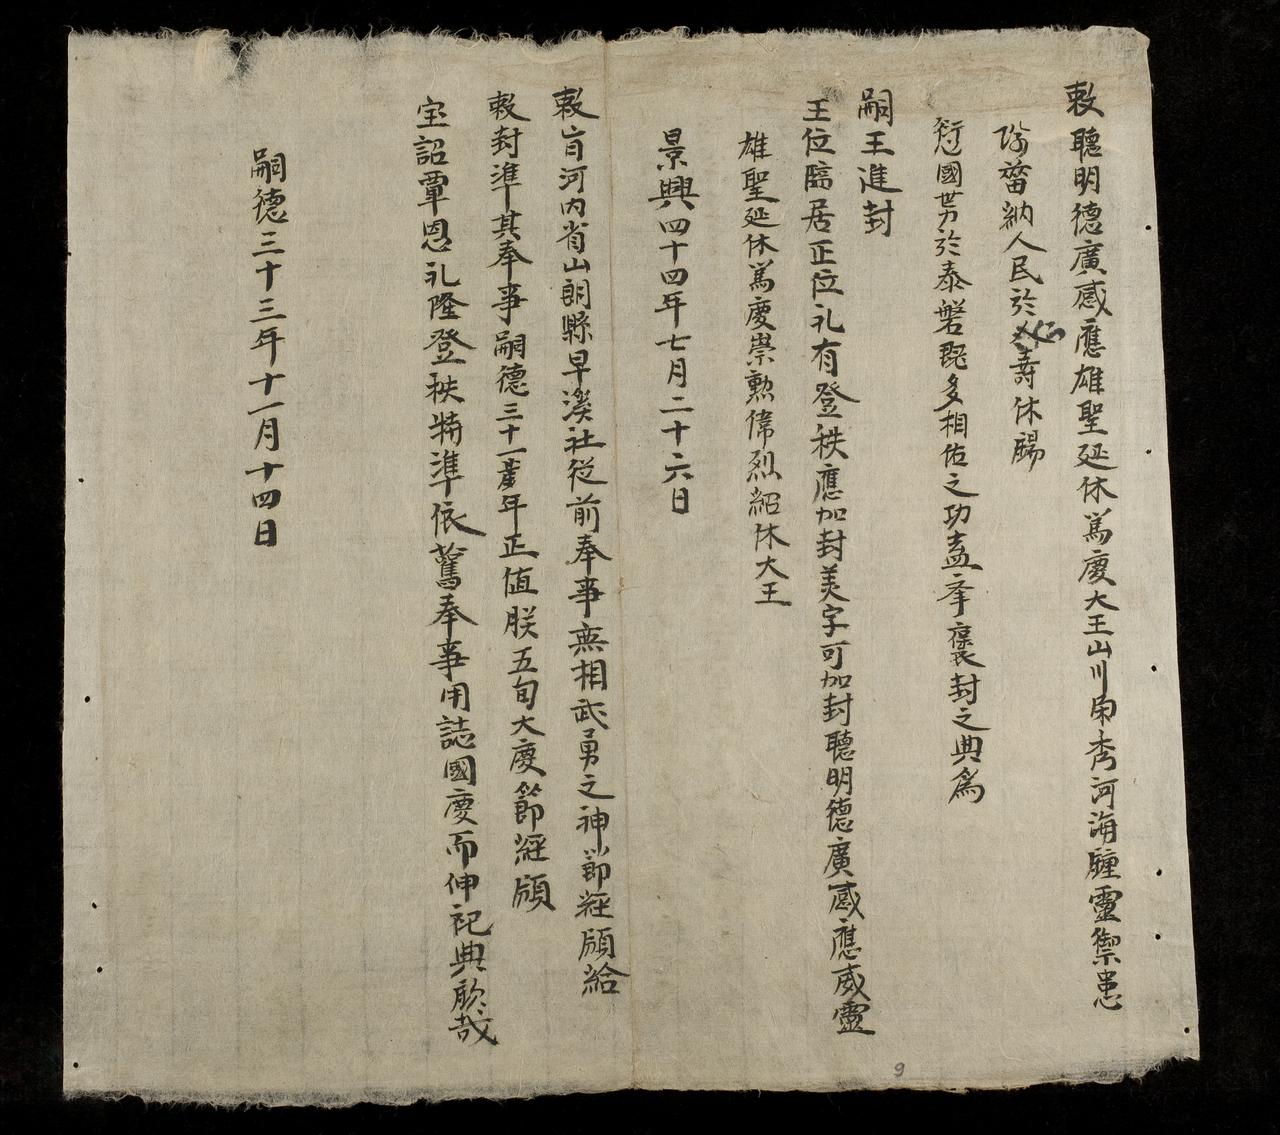 敕聰明德廣感應雄聖延休篤慶大王山川毓秀河海鍾靈禦患
除菑納人民於壽休賜
衍國勢於泰磐既多相佐之功盍夆褒封之典為
嗣王進封
王位臨居正位礼有登秩應加封美字可加封聰明德廣感應威靈
雄聖延休篤慶崇勲偉烈紹休大王
景興四十四年七月二十六日
敕旨河内省山朗縣早溪社從前奉事無相武勇之神節經頒給
敕封準其奉事嗣德三十一年正值朕五旬大慶節經頒
宝詔覃恩礼隆登秩特準依舊奉事用誌國慶而伸祀典欽哉
嗣德三十三年十一月十四日
9